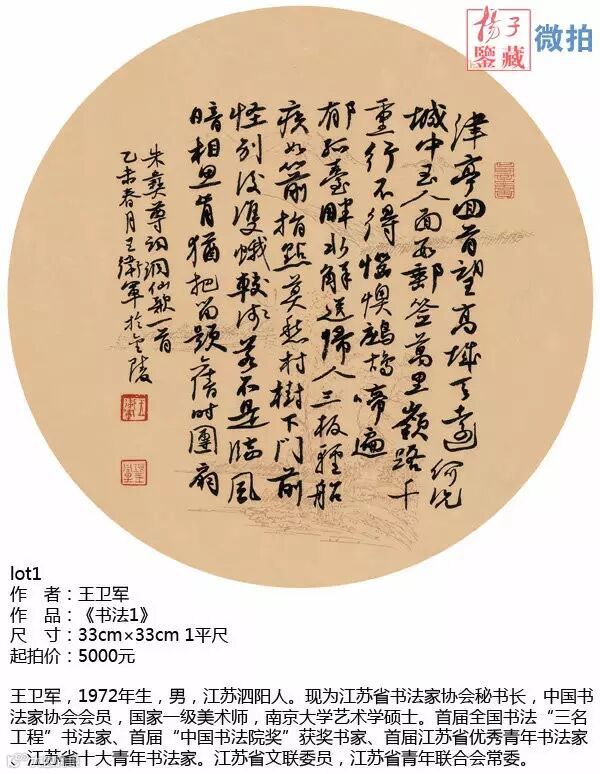 揚子
鑒藏
微拍
津亭回首望高城天遠何況
城中玉人面數郵簽萬里嶺路千
重行不得惱懊鷓鴣啼遍
郁孤臺畔水解送歸人三板輕船
疾如箭指點莫愁村樹下門前
怪別後雙蛾較淺若不是臨風
暗相思肯猶把留題舊時團扇
朱彝尊詞洞仙歌一首
乙未春月王衛軍於金陵
lot1
作 者：王卫军
作 品：《书法1》
尺 寸：33cm×33cm 1平尺
起拍价：5000元
王卫军，1972年生，男，江苏泗阳人。现为江苏省书法家协会秘书长，中国书
法家协会会员，国家一级美术师，南京大学艺术学硕士。首届全国书法“三名
工程”书法家、首届“中国书法院奖”获奖书家、首届江苏省优秀青年书法家
、江苏省十大青年书法家。江苏省文联委员，江苏省青年联合会常委。